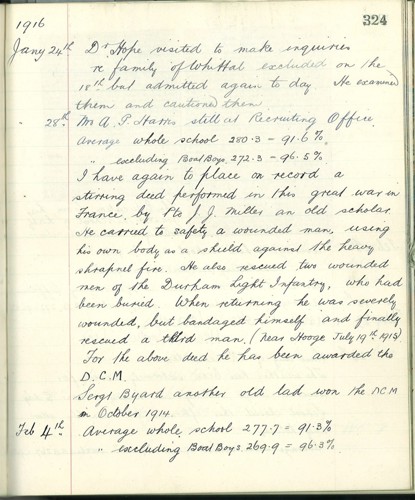 1916
324
Jany 24th Dr Hope visited to make inquiries
re family of Whittal excluded on the
18th but admitted again to day. He examined
them and cautioned them.
28th. Mr A. P. Harris still at Recruiting Office.
Average whole school 280.3 = 91.6%
" excluding Boat Boys, 272.3 = 96.5%
I have again to place on record a
stirring deed performed in this great war in
France, by Pte J. J. Miller an old scholar.
He carried to safety a wounded man, using
his own body as a shield against the heavy
shrapnel fire. He also rescued two wounded
men of the Durham Light Infantry, who had
been buried. When returning he was severely
wounded, but bandaged himself and finally
rescued a third man. (Near Hooge July 19th 1915)
For the above deed he has been awarded the
D.C.M.
Sergt Byard another old lad won the DCM
in October 1914.
Feb 4th. Average whole school 277.7 = 91.3%
" excluding Boat Boys 269.9 = 96.3%